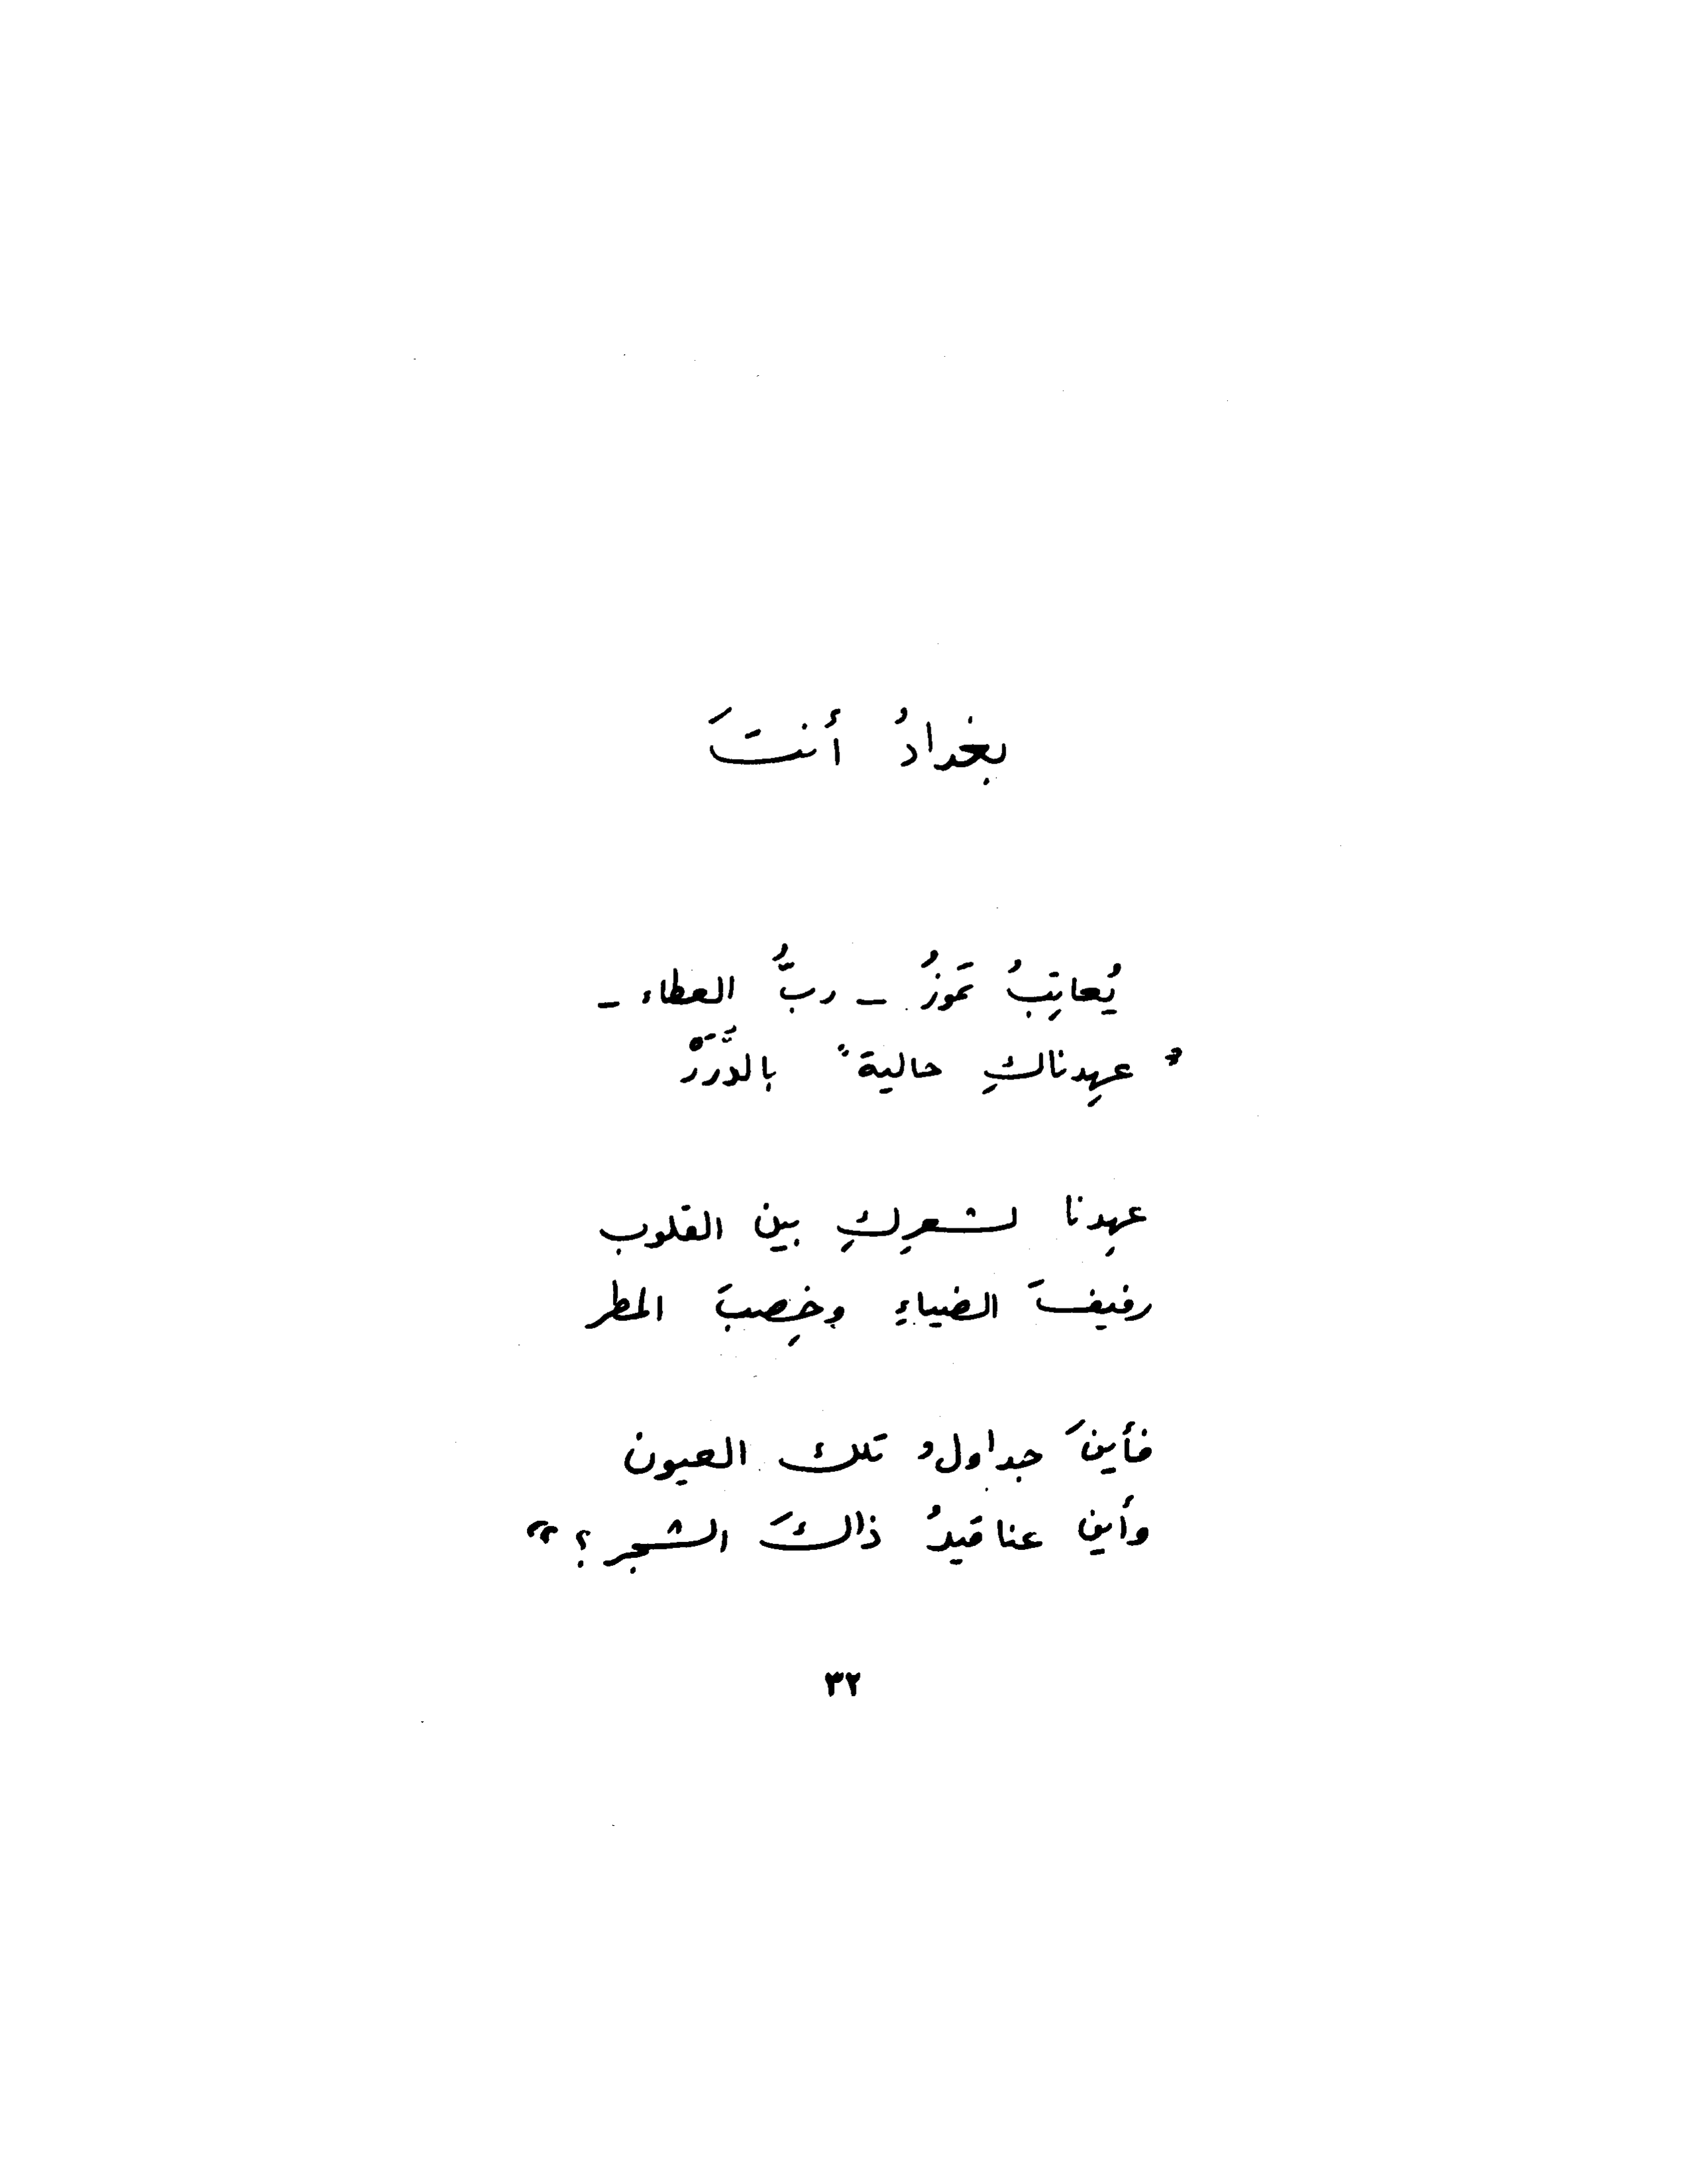 بغدادُ أنتَ
يُعاتِبُ تموزُ – ربُّ العطاء –
" عهِدناكِ حاليةً بالدُّرَرْ
عهِدنا لشعرِكِ بين القلوب
رفيفَ الضياءِ وخِصبَ المطر
فأينَ جداولُ تلك العيون
وأين عناقيدُ ذاكَ الشجر ؟ "
٣٢